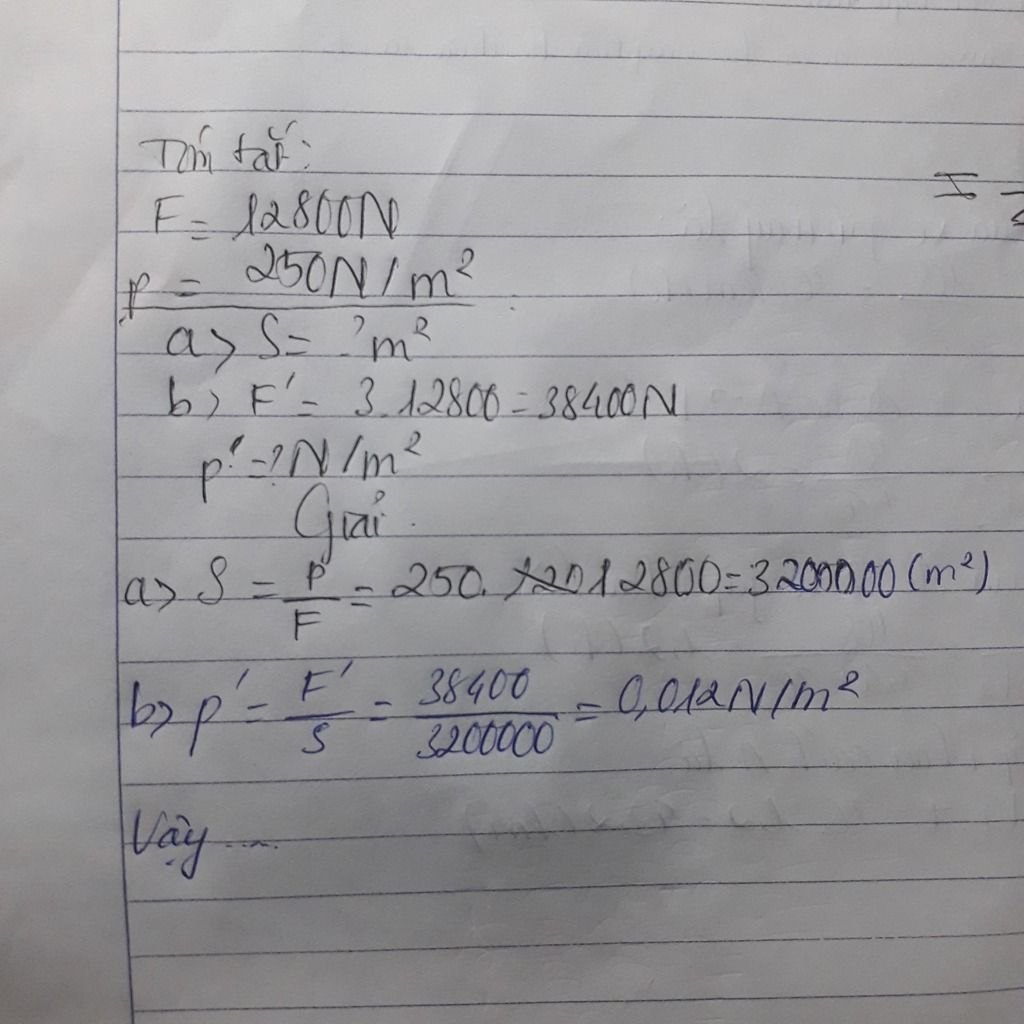 Tóm tắt:
F = 12800N
p = 250N/m²
a> S = ?m²
b> F' = 3.12800 = 38400N
p' = ?N/m²
Giải
a> S = p/F = 250. 12800 = 3200000 (m²)
b> p' = F'/S = 38400/3200000 = 0,012N/m²
Vậy....